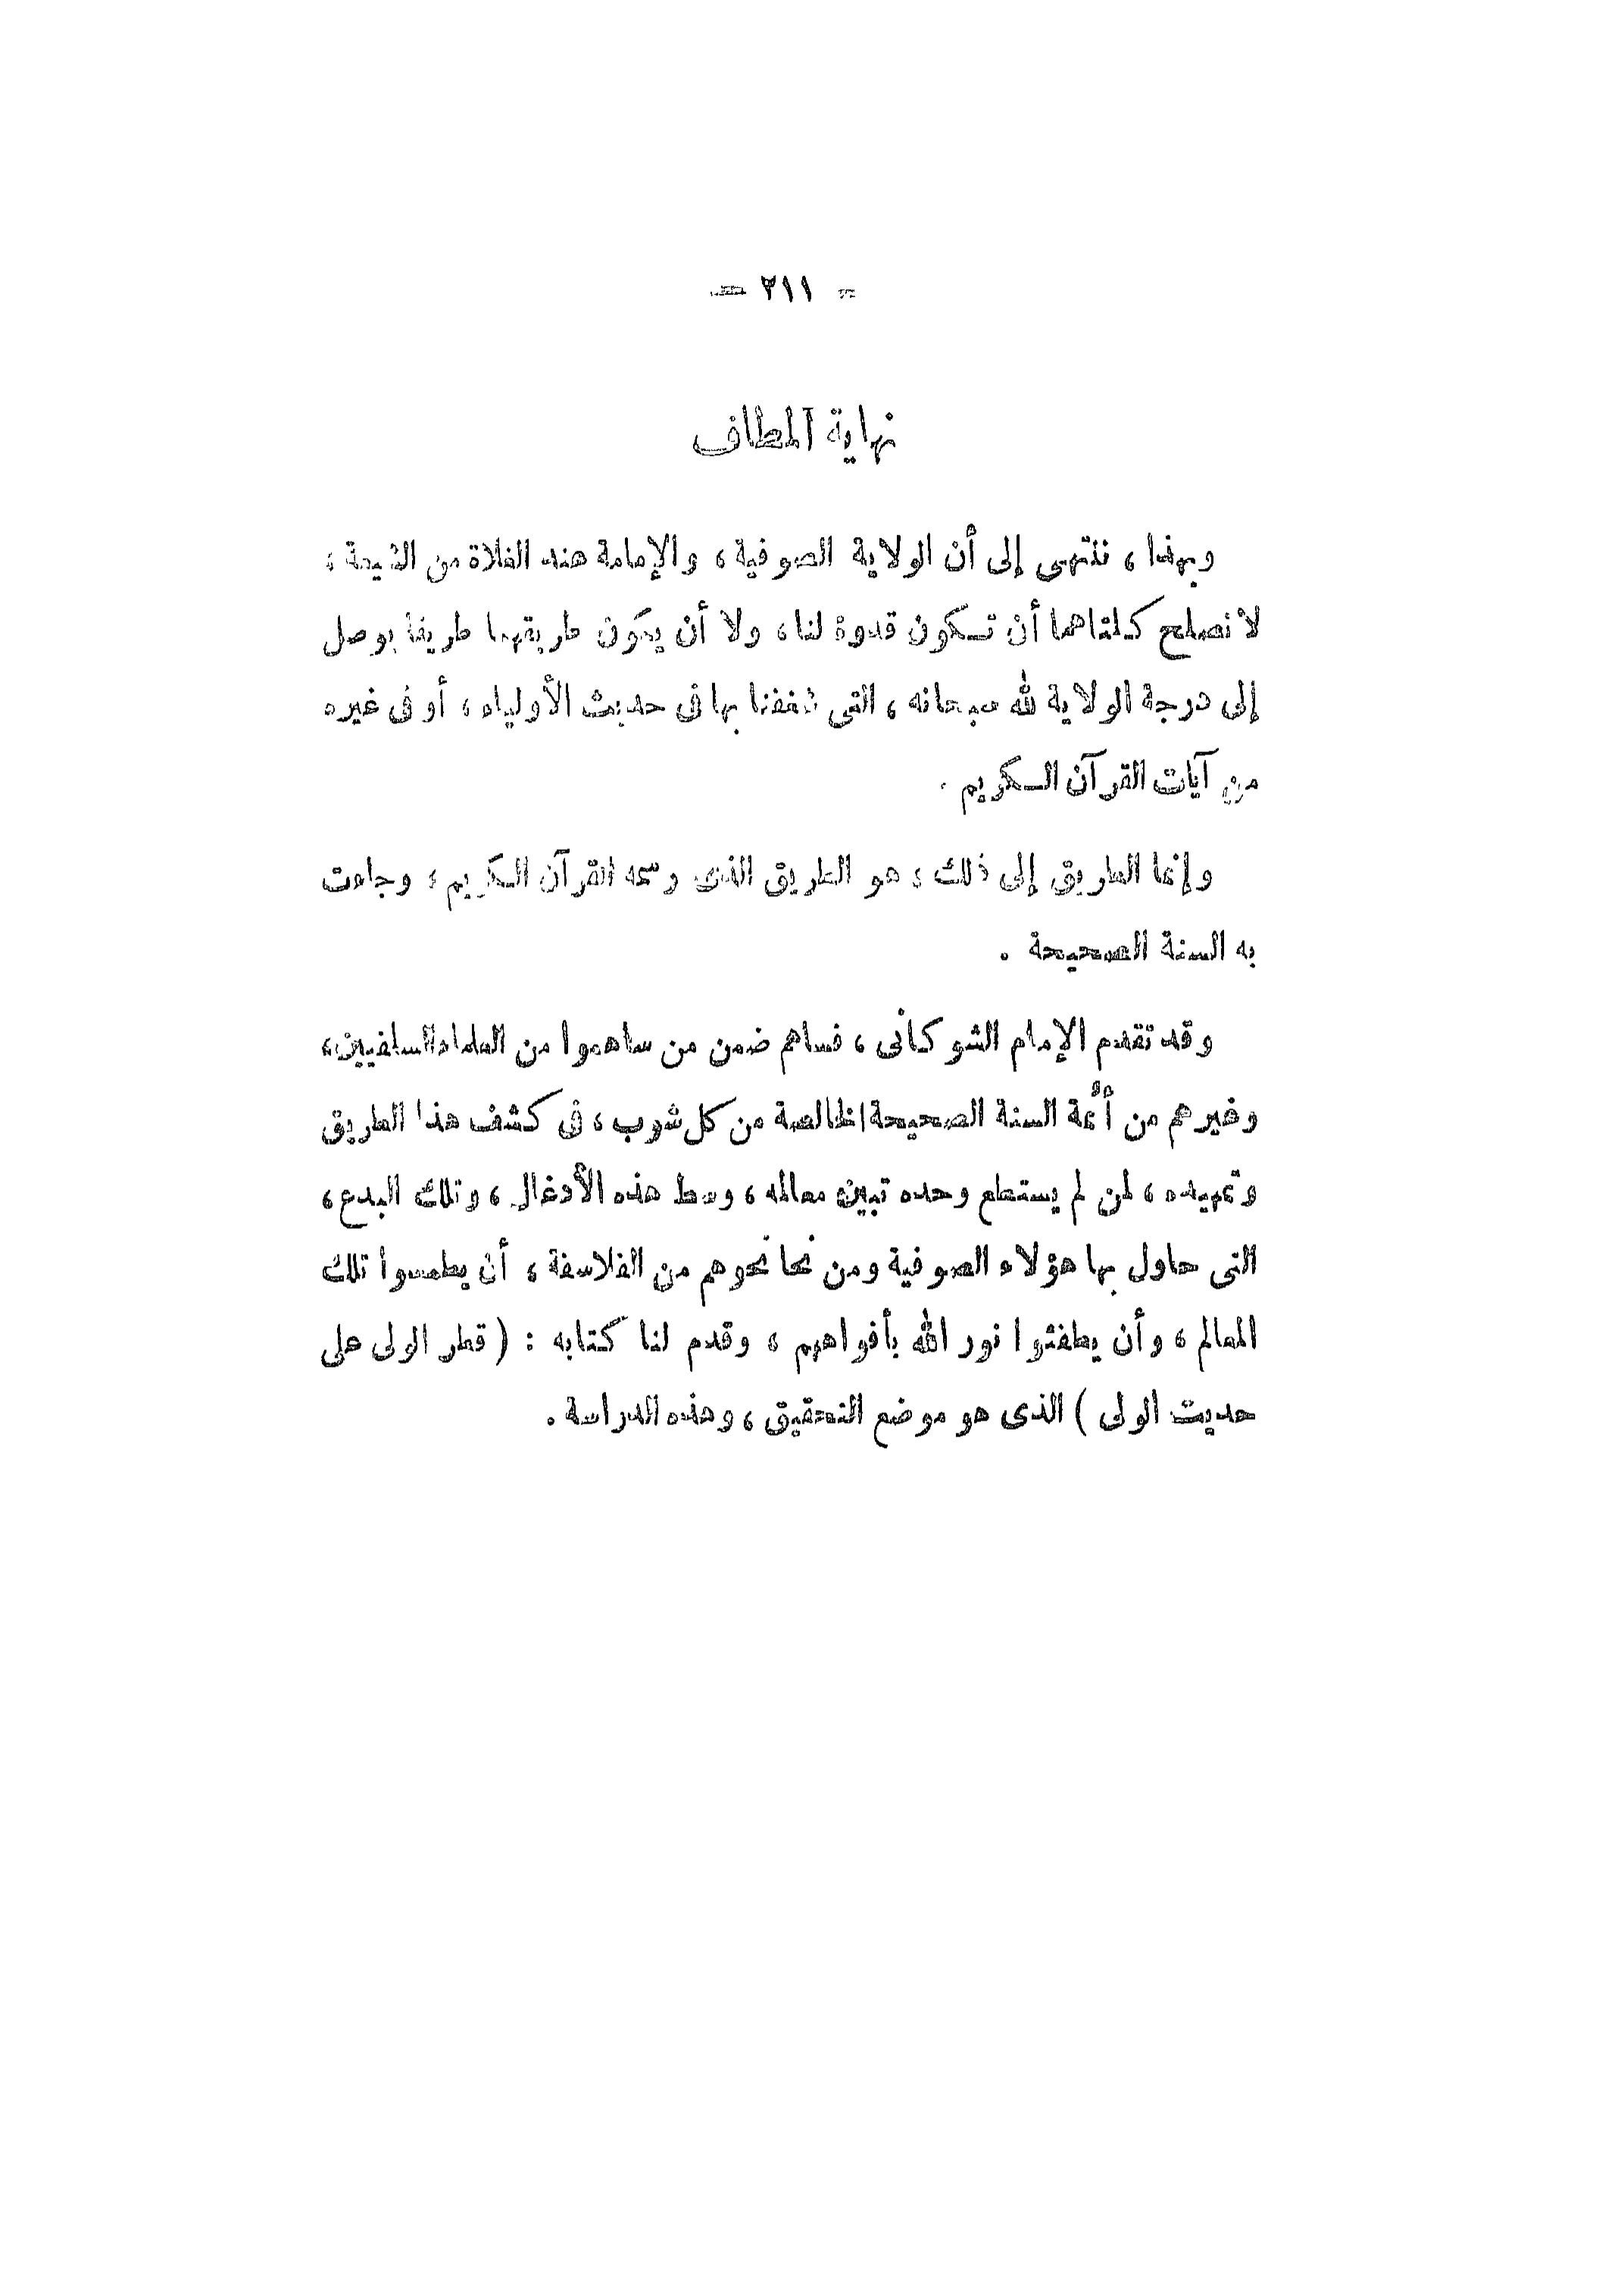 — ٢١١ —
نهاية المطاف
وبهذا ، ننتهى إلى أن الولاية الصوفية ، والإمامة عند الغلاة من الشيعة ،
لا تصلح كلتاهما أن تكون قدوة لنا ، ولا أن يكون طريقهما طريقا يوصل
إلى درجة الولاية لله سبحانه ، التى شغفنا بها فى حديث الأولياء ، أو فى غيره
من آيات القرآن الكريم .
وإنما الطريق إلى ذلك ، هو الطريق الذى رسمه القرآن الكريم ، وجاءت
به السنة الصحيحة .
وقد تقدم الإمام الشوكانى ، فساهم ضمن من ساهموا من العلماء السلفيين ،
وغيرهم من أئمة السنة الصحيحة الخالصة من كل شوب ، فى كشف هذا الطريق
وتمهيده ، لمن لم يستطع وحده تبين معالمه ، وسط هذه الأدغال ، وتلك البدع ،
التى حاول بها هؤلاء الصوفية ومن نحا نحوهم من الفلاسفة ، أن يطمسوا تلك
المعالم ، وأن يطفئوا نور الله بأفواههم ، وقدم لنا كتابه : ( قطر الولى على
حديث الولى ) الذى هو موضع التحقيق ، وهذه الدراسة .